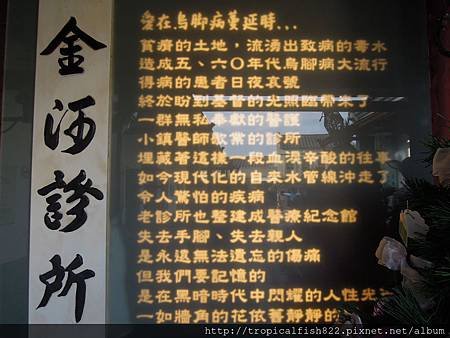 金河診所
愛在烏腳病蔓延時...
貧瘠的土地，流湧出致病的毒水
造成五、六〇年代烏腳病大流行
得病的患者日夜哀號
終於盼到基督的光照臨帶來了
一群無私奉獻的醫護
小鎮醫師執業的診所
埋藏著這樣一段血淚辛酸的往事
如今現代化的自來水管線沖走了
令人驚怕的疾病
老診所也整建成醫療紀念館
失去手腳、失去親人
是永遠無法遺忘的傷痛
但我們要記憶的
是在黑暗時代中閃耀的人性光
一如牆角的花依舊靜靜的
http://tropicalfish822.pixnet.net/album